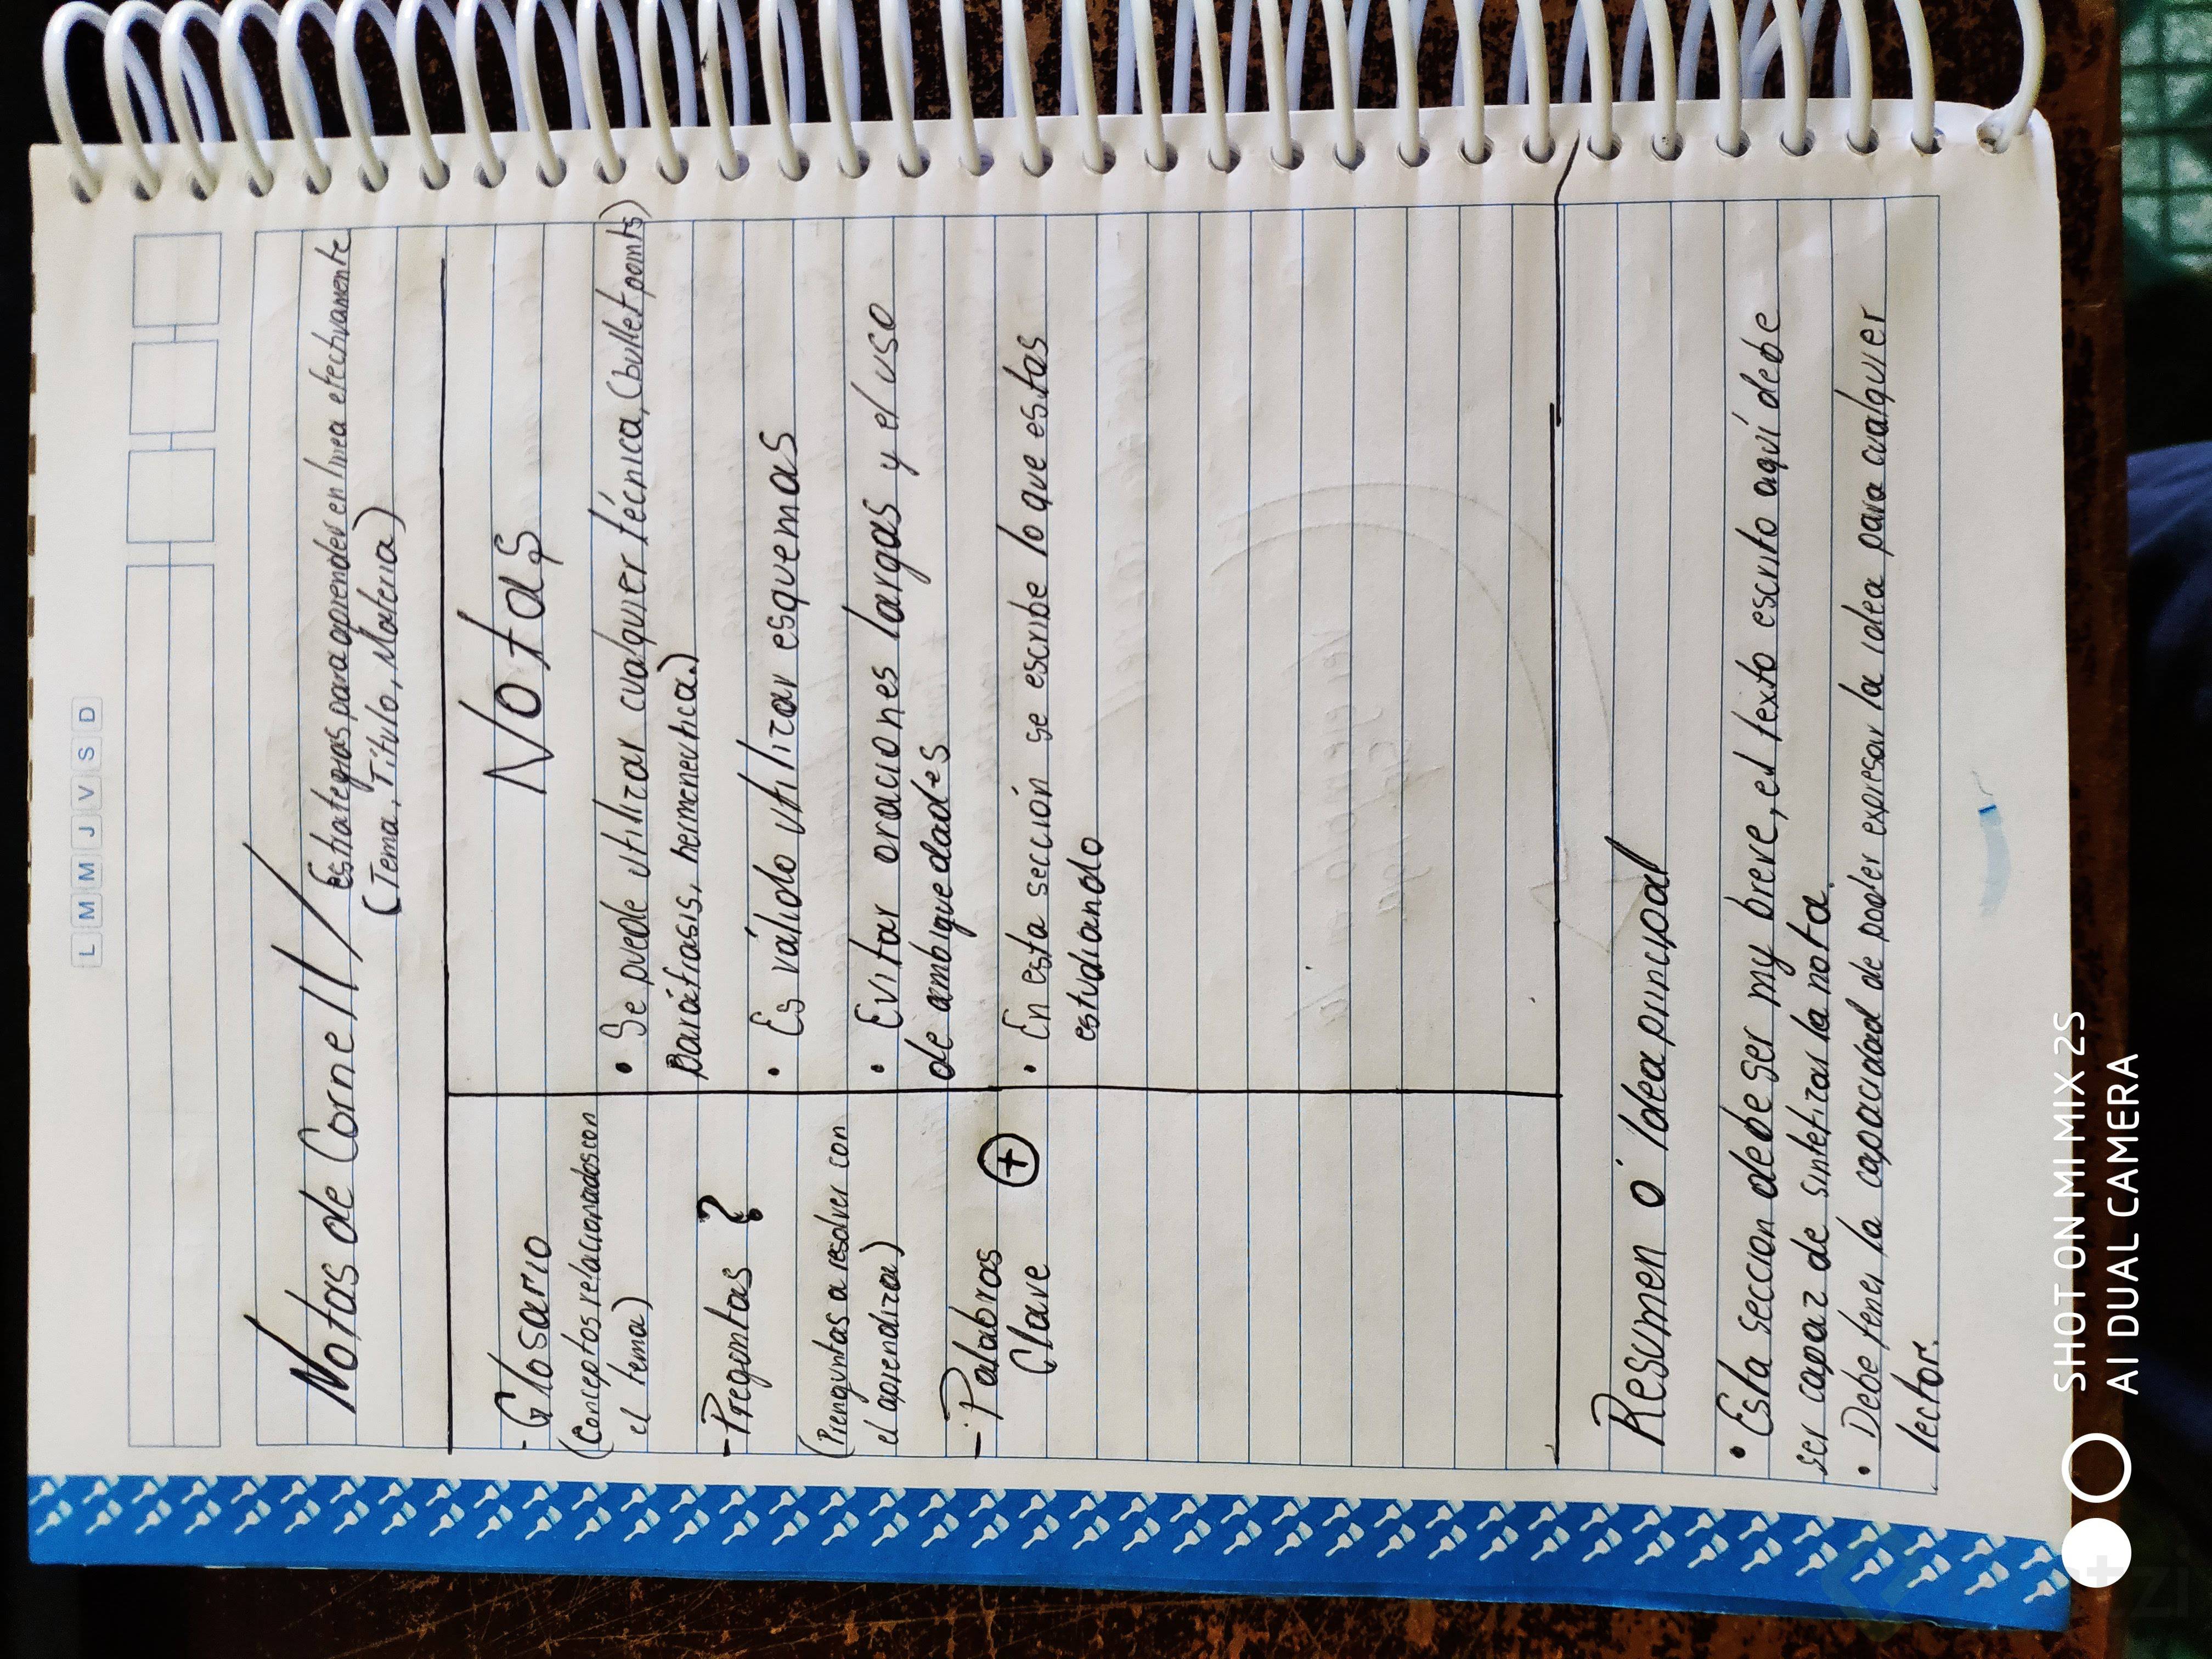 L M M J V S D
Notas de Cornell / Estrategias para aprender en linea efectivamente
(Tema, Título, Materia)
- Glosario
(Conceptos relacionados con
el tema)
- Pregontas ?
(Prenguntas a resolver con
el aprendizar)
- Palabras
Clave +
Notas
• Se puede utilizar cualquier técnica, (bullet points)
Paráfrasis, hermeneutica.)
• Es válido utilizar esquemas
• Evitar oraciones largas y el uso
de ambiguedades
• En esta sección se escribe lo que estas
estudiando
Resumen ó Idea principal
• Esta seccion debe ser my breve, el texto escrito aquí debe
ser capaz de sintetizar la nota.
• Debe tener la capacidad de poder expresar la idea para cualquier
lector.
SHOT ON MI MIX 2S
AI DUAL CAMERA